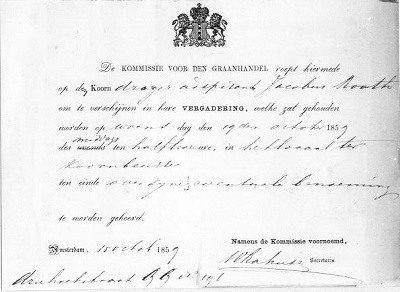 De KOMMISSIE VOOR DEN GRAANHANDEL roept hiermede
op den Koorn drager adspirant Jacobus
om te verschijnen in hare VERGADERING, welke zal gehouden
worden op woens dag den 19den october 1859
des middags ten half twee ure, in het locaal ter
Koornbeurs
ten einde over zijne eventuele benoeming
te worden gehoord.
Amsterdam, 15 Octob 1859
Namens de Kommissie voornoemd,
Secretaris.